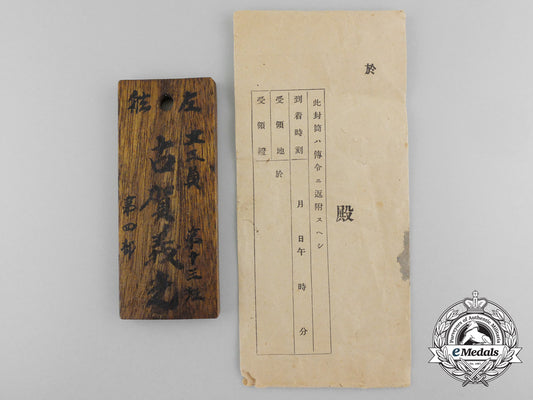 左
舷
工工員
第十三班
古賀義光
第四部
於
殿
此封筒ハ傳令ニ返附スヘシ
到着時刻 月 日午 時 分
受領地 於
受領證
eMedals
Purveyors of Authentic Militaria